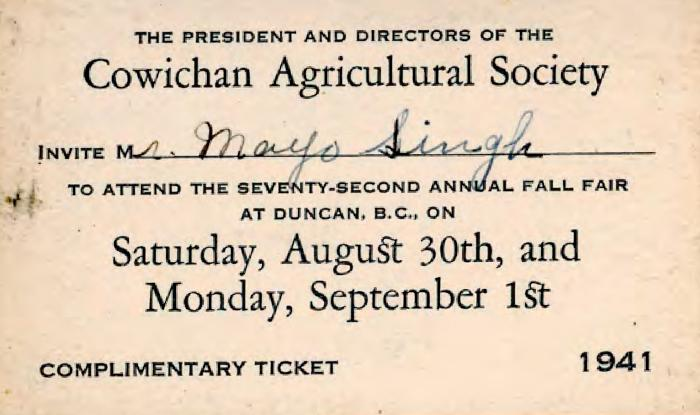 THE PRESIDENT AND DIRECTORS OF THE
Cowichan Agricultural Society
INVITE Mr. Mayo Singh
TO ATTEND THE SEVENTY-SECOND ANNUAL FALL FAIR
AT DUNCAN, B.C., ON
Saturday, August 30th, and
Monday, September 1st
COMPLIMENTARY TICKET 1941